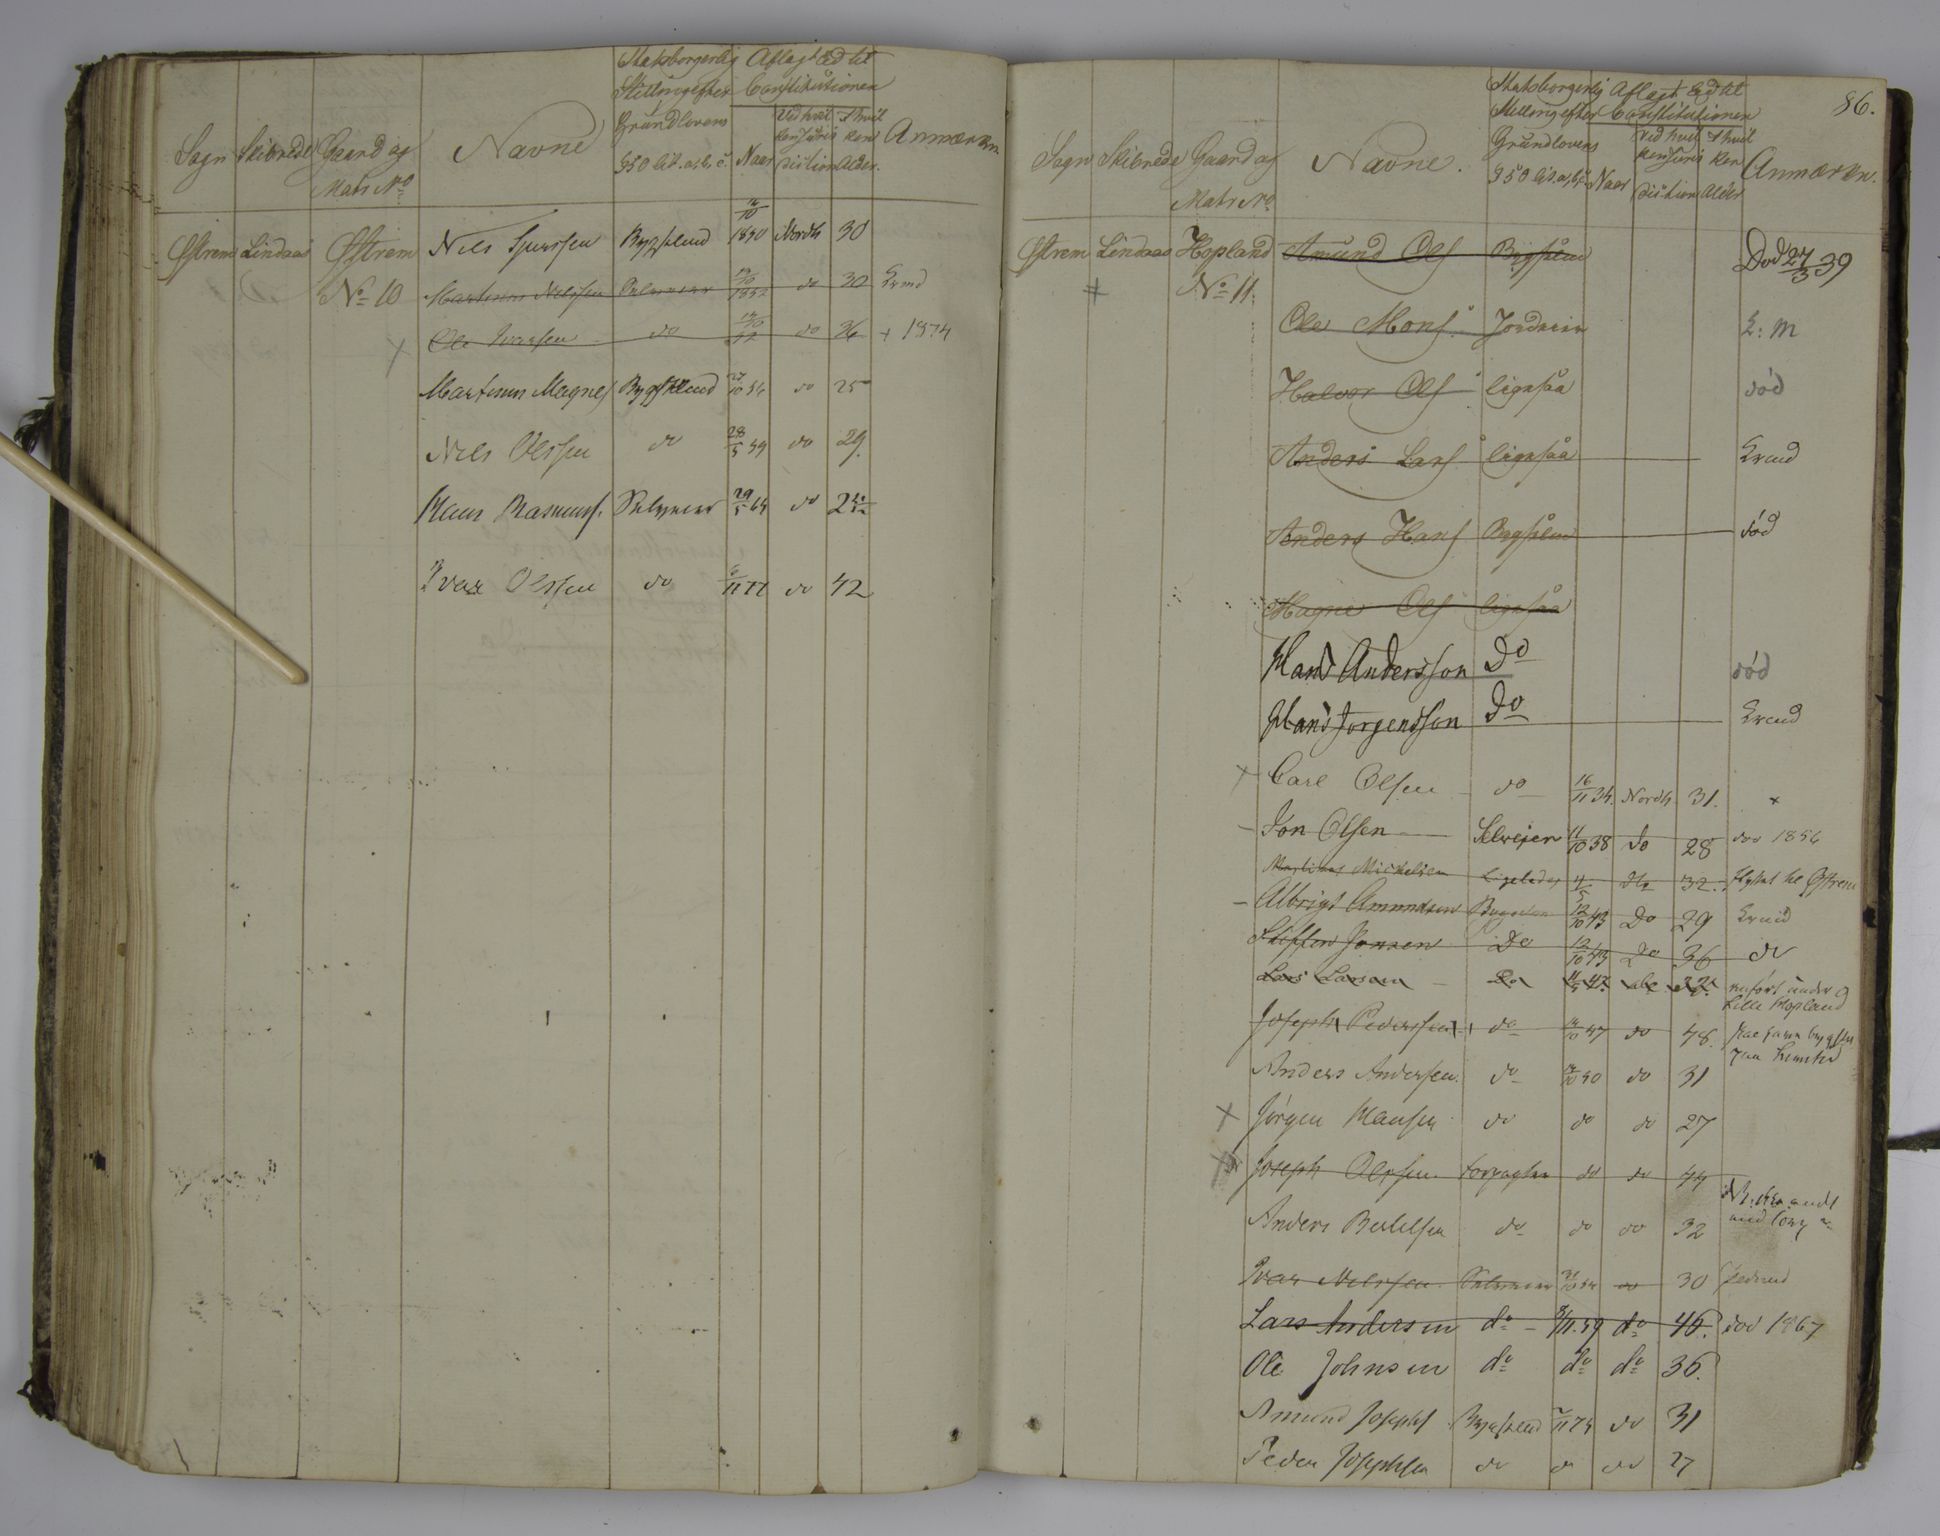 Sogn Skibrede Gaard og Matr No Navne Statsborgerlig Stilling efter Grundlovens § 50 Lit. a, b, c. Aflagt Ed til Constitutionen Naar Ved hvilken Jurisdiction I hvilken Alder. Anmærkn
Østrem Lindaas Østrem Nils Bygslmd 14/10 1850 Nordh 30
No 10 Martinus Nilssen Selveier 1852 do 30 Ermd
Ole Ivarssen do do 36 + 1874
Martinus Magnes Bygslmd 27/10 54 do 25
Nils Olssen do 28/5 59 do 29.
Hans Rasmuss. Selveier 29/5 65 do
Ivar Olssen do 6/11 77 do 42
86.
Sogn Skibrede Gaard og Matr No Navne. Statsborgerlig Stilling efter Grundlovens § 50 Lit. a, b, c. Naar Aflagt Ed til Constitutionen Ved hvilken Jurisdiction I hvilken Alder Anmærkn.
Østrem Lindaas Hopland Amund Ols Død 27/3 39
No 11. Ole Mons
Halvor Ols ligesaa død
Anders Lars ligesaa
Anders Hans død
Magne Ols ligesaa
Hans Andersson Do død
Hans Jorgensson Do
Carl Olsen do 16/11 34. Nordh 31. x
Jon Olsen Selveier 11/10 38 do 28 død 1856
Martinus Michelsen Ligeledes 4/5 do 32. flyttet til Østrem
Albrigt Amundsen 12/10 43 Do 29
Steffen Jonsen Do 12/10 43 Do 36 do
Lars Larsen Do anført under Lille Hopland
Joseph Pederssen do 14/10 47 do 48.
Anders Andersen. do 14/10 50 do 31
Jörgen Hansen do do do 27
Joseph Olssen Forpagter do do 44
Anders Bertelsen do do do 32
Ivar Nilssen Selveier 31/10 54 do 30
Lars Andersen do 8/11. 59 do 46. død 1867
Ole Johnsen do do do 36.
Amund Josephs Bygslmd 7/11 75 do 31
Peder Josephsen do do do 27